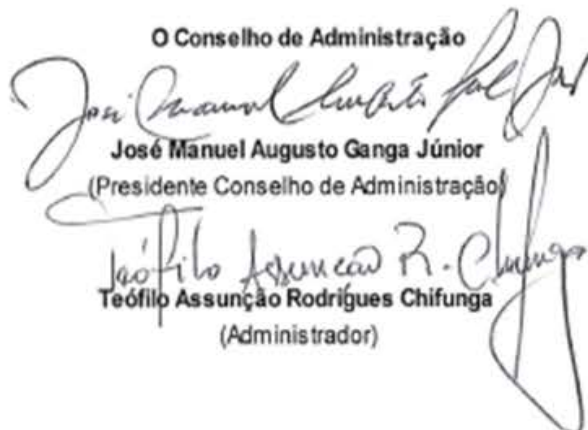 O Conselho de Administração
José Manuel Augusto
José Manuel Augusto Ganga Júnior
(Presidente Conselho de Administração)
Teófilo Assunção R. Chifunga
Teófilo Assunção Rodrigues Chifunga
(Administrador)